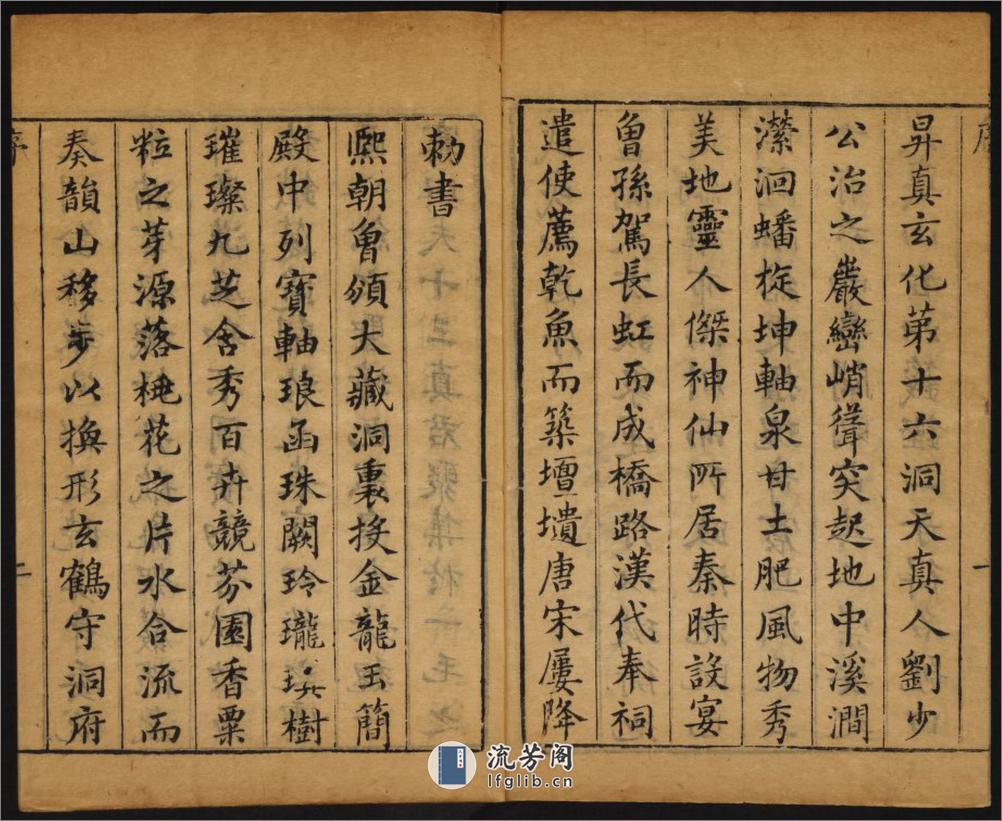 序
一
昇真玄化第十六洞天真人劉少
公治之巖巒峭聳突起地中溪澗
瀠洄蟠旋坤軸泉甘土肥風物秀
美地靈人傑神仙所居秦時設宴
魯孫駕長虹而成橋路漢代奉祠
遣使薦乾魚而築壇墳唐宋屢降
勑書
熙朝曾頒大藏洞裏投金龍玉簡
殿中列寶軸琅函珠闕玲瓏琪樹
璀璨九芝含秀百卉競芬園香粟
粒之芽源落桃花之片水合流而
奏韻山移步以換形玄鶴守洞府
序
二
流芳阁
lfglib.cn